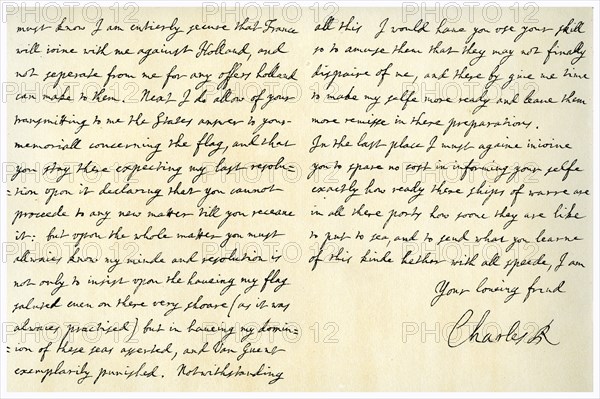 must know I am entierly secure that France
will ioine with me against Holland, and
not seperate from me for any offers holland
can make to them. Next I do allow of your
transmitting to me the States answer to your
memoriall concerning the flag, and that
you stay there expecting my last resolu=
=tion upon it declaring that you cannot
proceede to any new matter till you receave
it: but upon the whole matter you must
allwaies know my minde and resolution is
not only to insist upon the haveing my flag
saluted even on there very shoare (as it was
alwaies practised) but in haveing my domin=
=ion of these seas asserted, and Van Guent
exemplarily punished. Notwithstanding
all this I would have you use your skill
so to amuse them that they may not finally
dispaire of me, and there by give me time
to make my selfe more ready and leave them
more remisse in there preparations.
In the last place I must againe inioine
you to spare no cost in informing your selfe
exactly how ready there ships of warre are
in all there ports how soone they are like
to put to sea, and to send what you learne
of this kinde hether with all speede, I am
Your loveing frind
Charles R
PHOTO 12